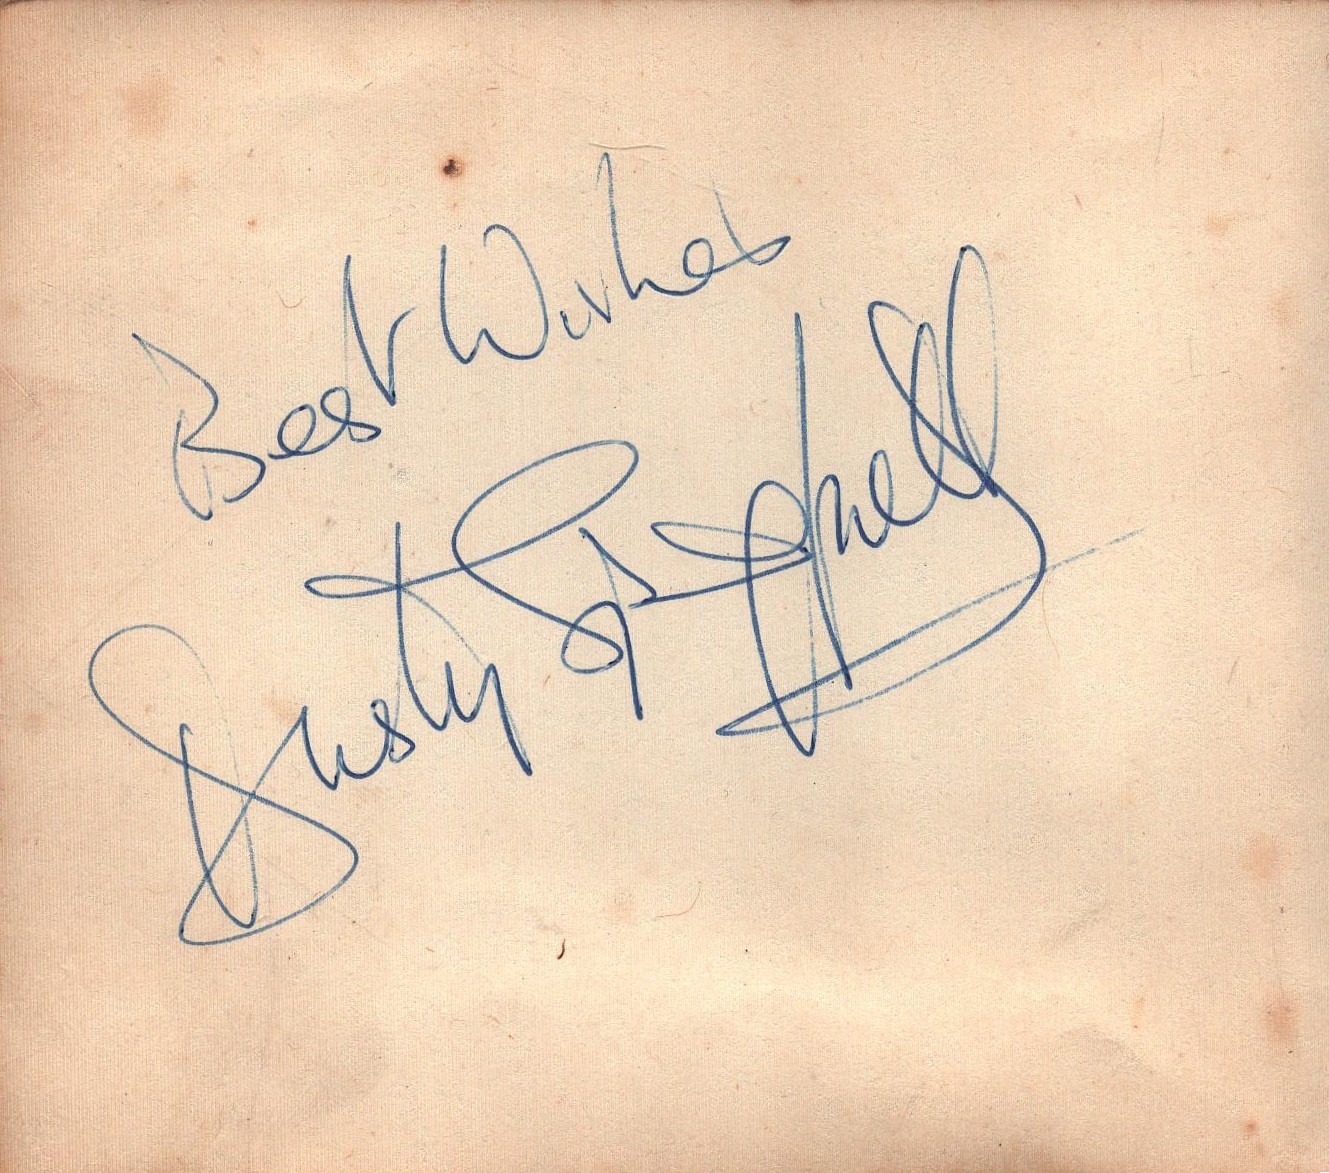 Best Wishes
Dusty Springfield